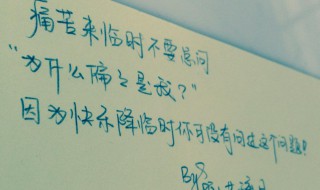 痛苦来临时不要总问
“为什么偏偏是我？”
因为快乐降临时你可没有问过这个问题！
By